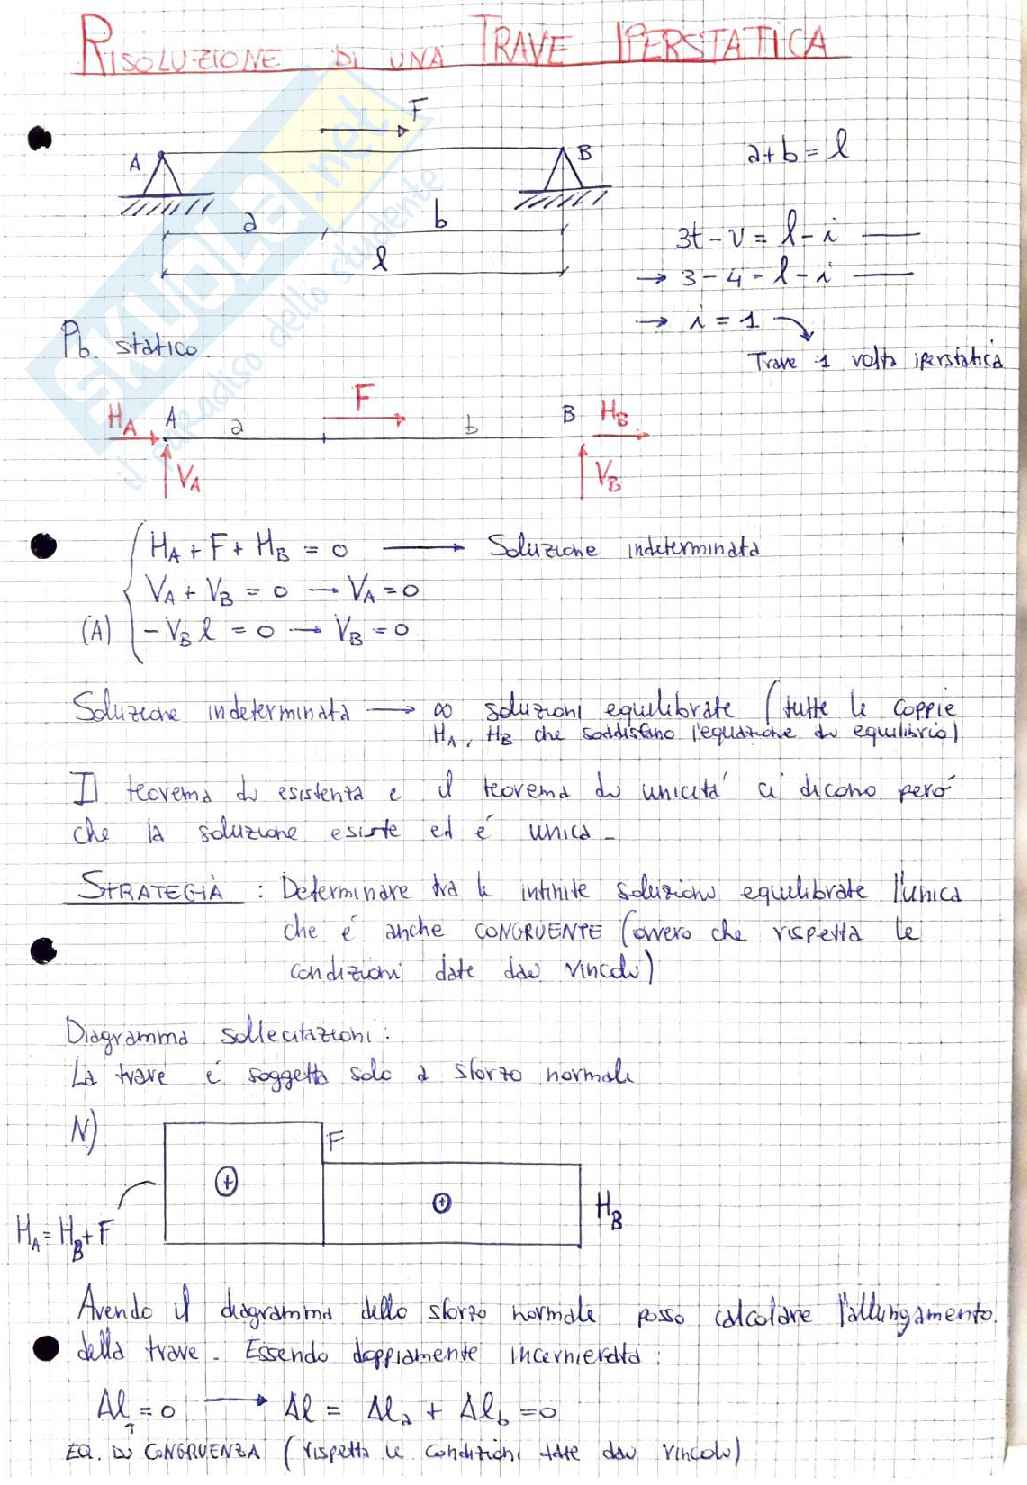 RISOLUZIONE DI UNA TRAVE IPERSTATICA
F
A B
a+b=l
a b
l
3t-v=l-i
→ 3-4=l-i
→ i=1
Trave 1 volta iperstatica
Pb. statico.
H_A A a F b B H_B
V_A V_B
H_A+F+H_B=0 → Soluzione indeterminata
V_A+V_B=0 → V_A=0
(A) -V_B l=0 → V_B=0
Soluzione indeterminata → ∞ soluzioni equilibrate (tutte le coppie
H_A, H_B che soddisfano l'equazione di equilibrio)
Il teorema di esistenza e il teorema di unicità ci dicono però
che la soluzione esiste ed è unica.
STRATEGIA : Determinare tra le infinite soluzioni equilibrate l'unica
che è anche CONGRUENTE (ovvero che rispetta le
condizioni date dai vincoli)
Diagramma sollecitazioni:
La trave è soggetta solo a sforzo normale
N)
F
⊕ ⊕
H_B
H_A=H_B+F
Avendo il diagramma dello sforzo normale posso calcolare l'allungamento.
della trave. Essendo doppiamente incernierata:
Δl=0 → Δl = Δl_a + Δl_b = 0
↑
EQ. DI CONGRUENZA (rispetta le condizioni date dai vincoli)
SKUOLA.net
il paradiso dello studente